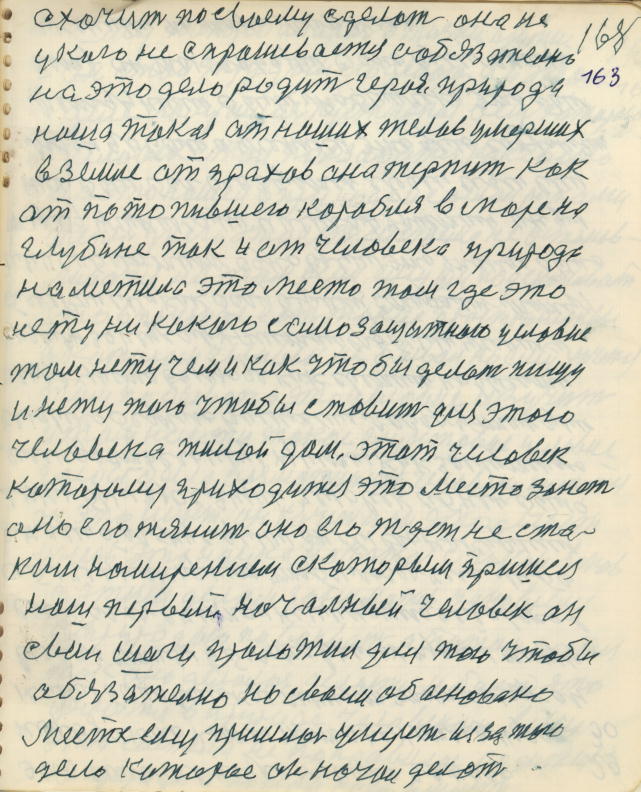 168
163
схочит по своему сделат она не
укого не спрашевается обязателно
на это дело родит героя. природа
наша такая от наших телов умерших
в земле от прахов она терпит как
от потопившего корабля в море на
глубине так и от человека природа
наметила это место там где это
нету ни какого самозащитного условие
там нету чем и как чтобы делат пищу
и нету того чтобы ставит для этого
человека жилой дом. этот человек
которому приходится это место занят
оно его тянит оно его ждет не ста-
ким намирением скоторым пришел
наш первый началный человек он
свои шаги проложил для того чтобы
обязателно на своем обосновано
месте ему пришлос умерет из за того
дела которое он начал делат